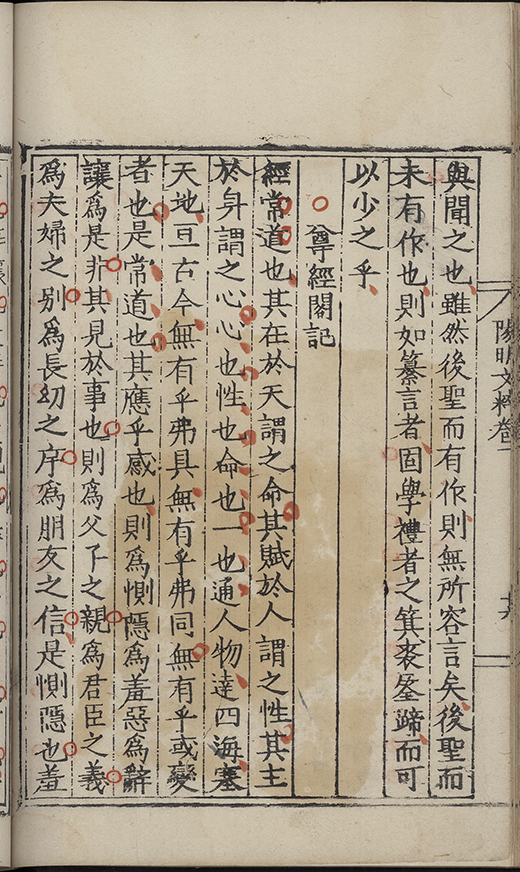 陽明文粹卷一
十六
與聞之也雖然後聖而有作則無所容言矣後聖而
未有作也則如纂言者固學禮者之箕裘筌蹄而可
以少之乎
○尊經閣記
經常道也其在於天謂之命其賦於人謂之性其主
於身謂之心心也性也命也一也通人物達四海塞
天地亘古今無有乎弗具無有乎弗同無有乎或變
者也是常道也其應乎感也則為惻隱為羞惡為辭
讓為是非其見於事也則為父子之親為君臣之義
為夫婦之别為長幼之序為朋友之信是惻隱也羞